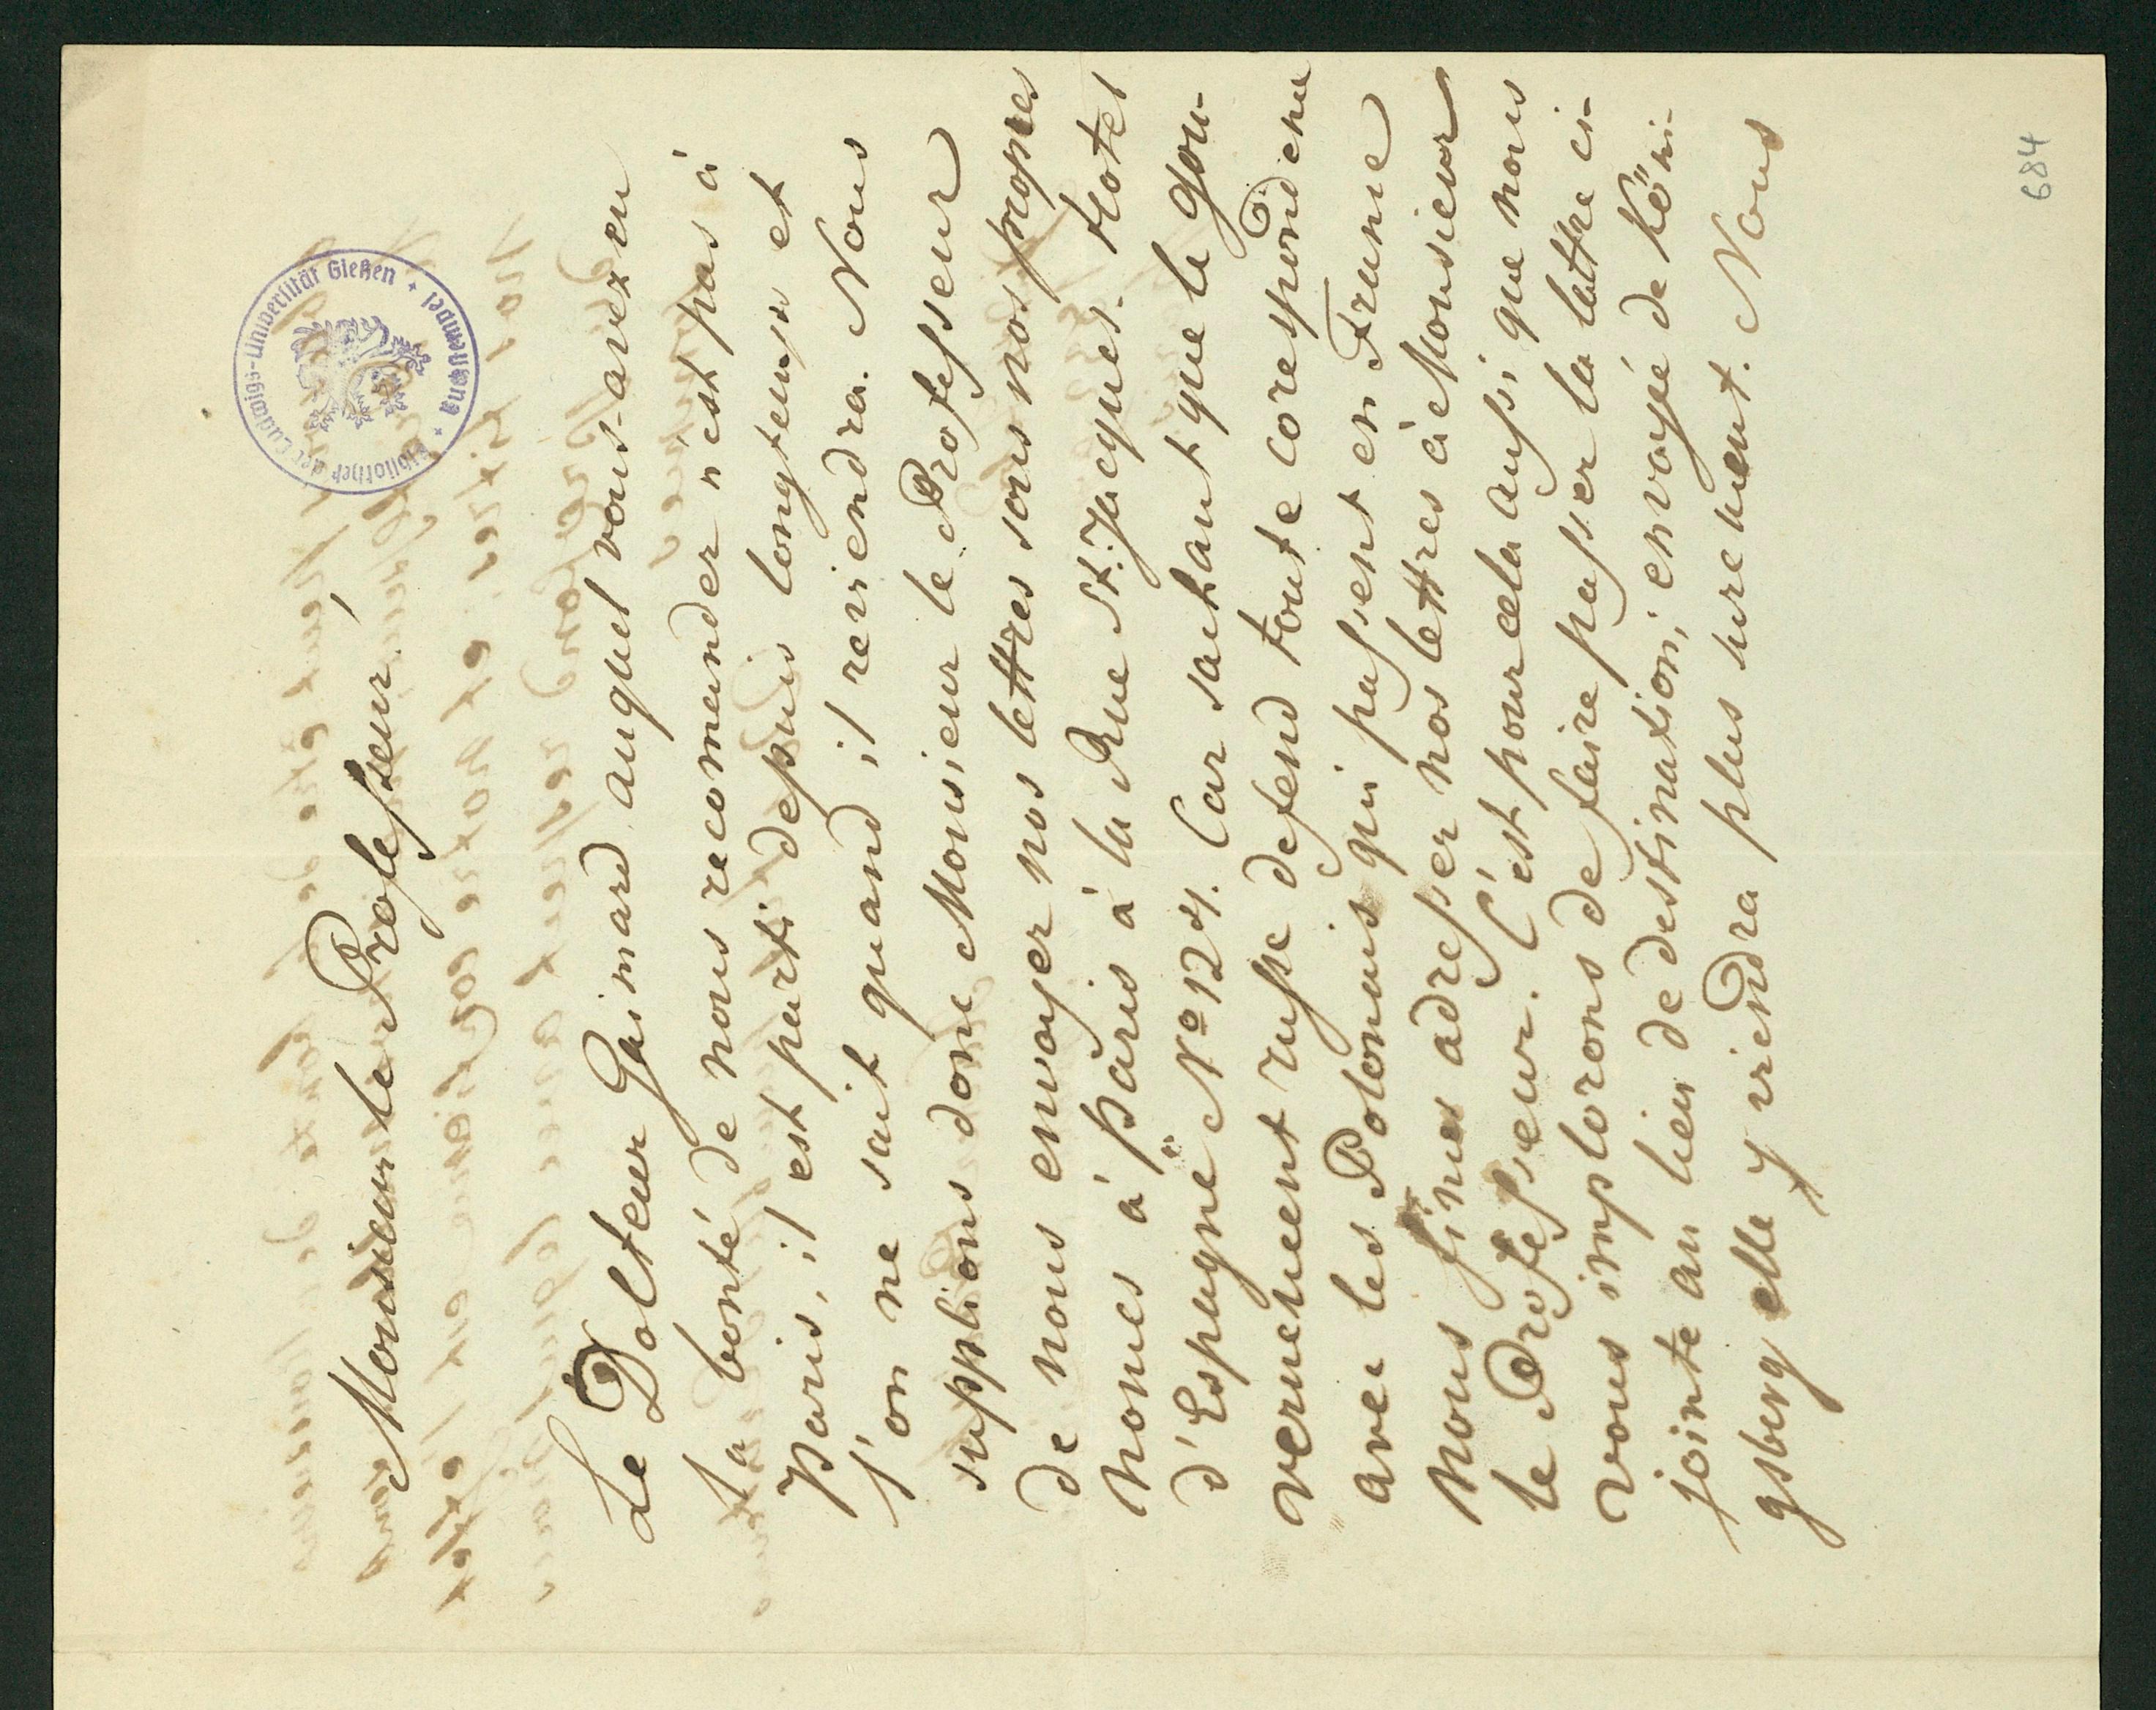 Bibliothek der Ludwigs-Universität Gießen + Buchstempel +
Monsieur le Professeur,
Le Dolteur Gaimard auquel vous-avez eu
la bonté de nous recomander n'est pas à
Paris, il est parti depuis longtemps et
l'on ne sait quand il reviendra. Nous
supplions donc Monsieur le Professeur
de nous envoyer nos lettres sous nos propres
nomes à Paris à la Rue St. Jacques. Hotel
d'Espagne No 124. Car sachant que le Gou-
vernement russe defend toute corespondence
avec les Polonais qui passent en France
nous fimes adresser nos lettres à Monsieur
le Professeur. C'est pour cela aussi que nous
vous implorons de faire passer la lettre ci-
jointe au lieu de destination; envoyée de Köni-
gsberg elle y viendra plus surement. Nous
684